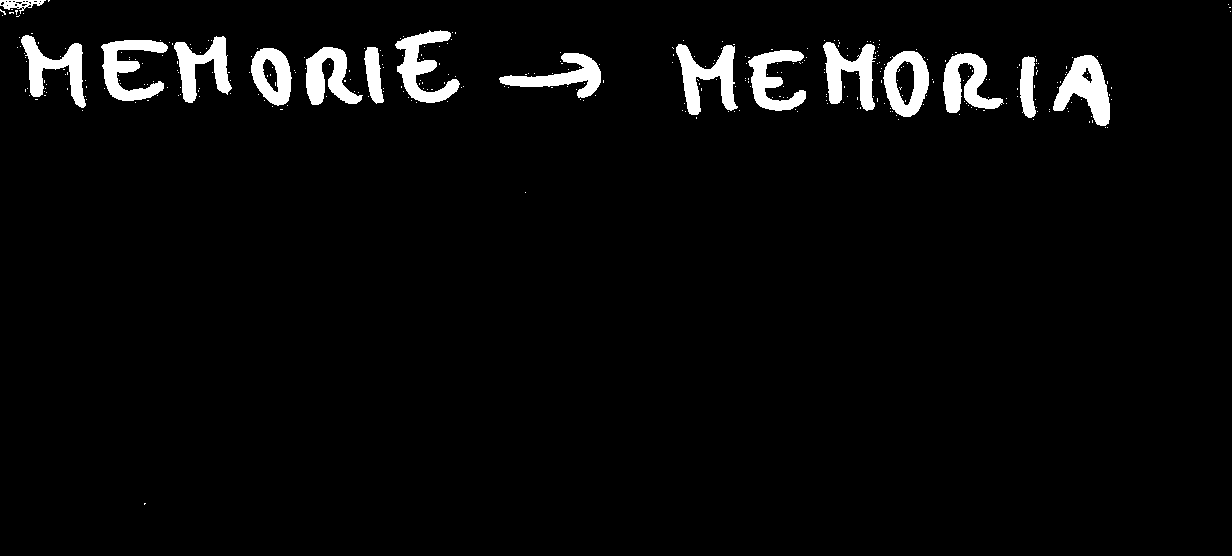 MEMORIE → MEMORIA